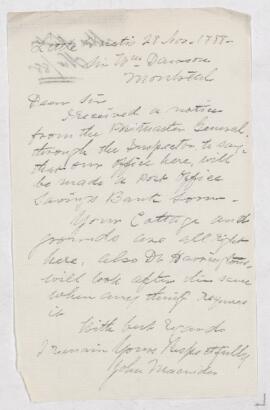 Little Metis 28 Nov. 1888-
Sir Wm Dawson
Montreal
Dear Sir
I received a notice
from the Postmaster General
through the Inspector to say
that our office here, will
be made a Post Office
Savings Bank soon.-
Your Cottage and
grounds are all right
here, also Dr Harrington's
will look after the same
when any thing requires
it
With best regards
I remain Yours Respectfully
John